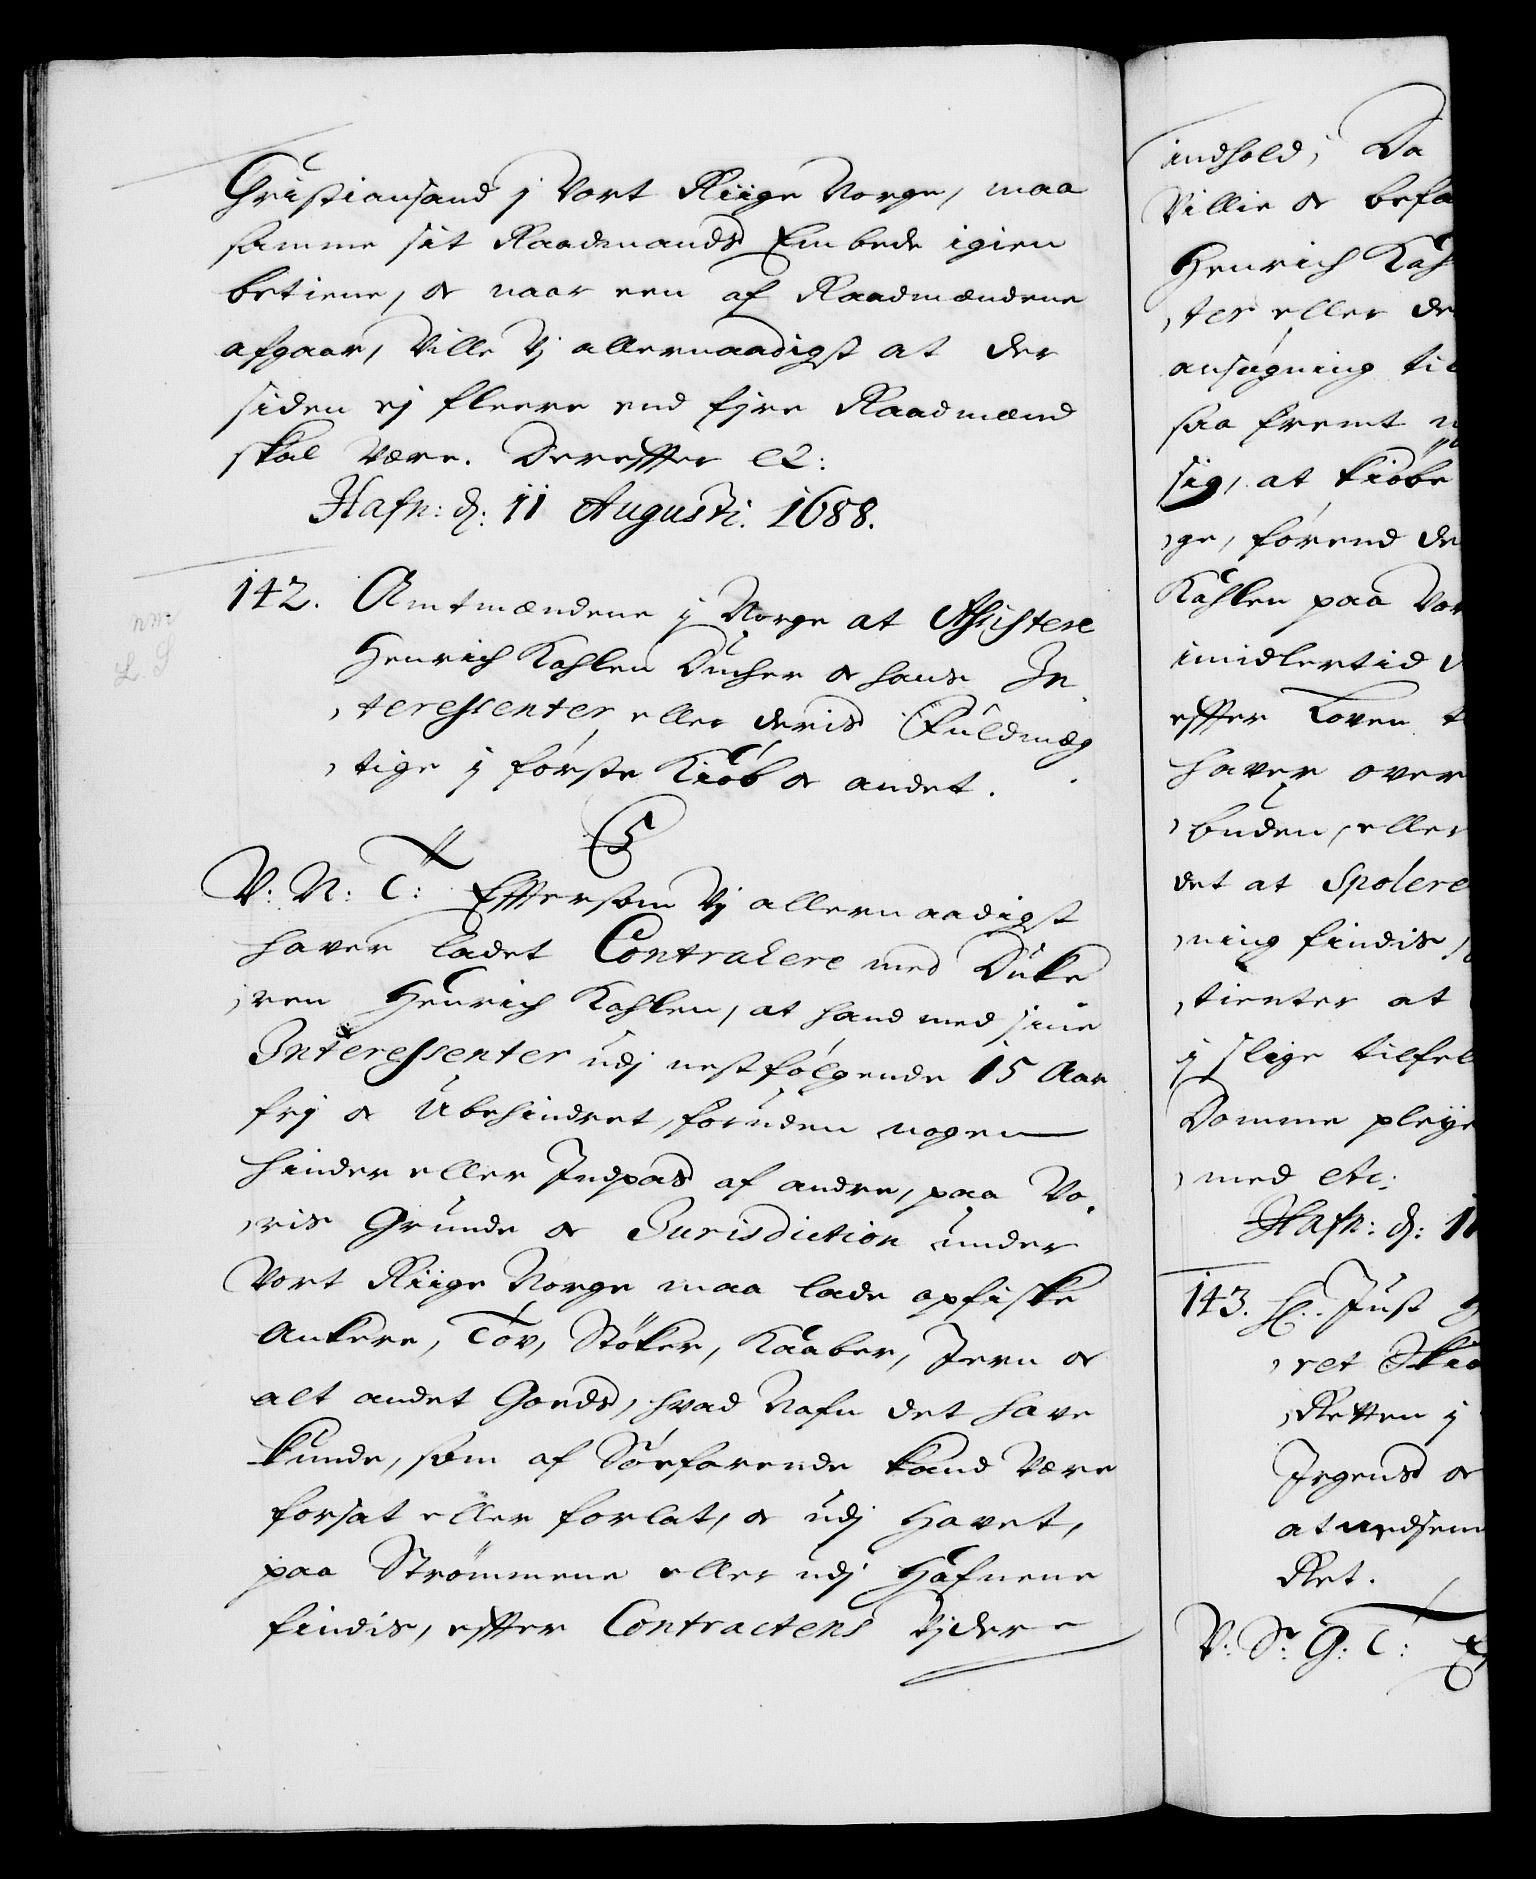 Christiansand j Vort Riige Norge, maa
samme sit Raadmands Embede igien
betiene, oc naar een af Raadmændene
afgaar, Ville Vj allernaadigst at der
siden ej fleere end fire Raadmænd
skal være. Dereffter etc:
Hafn: d: 11 Augusti. 1688.
142. Amtmændene j Norge at Assistere
Henrich Kahlen Ducher oc hans In
teressenter eller deris Fuldmæg
tige j første Kiøb oc andet.
V: N: T: Efftersom Vj allernaadigst
haver ladet Contrahere med Duke
ren Henrich Kahlen, at hand med sine
Interessenter udj nestfølgende 15 Aar
frj oc Ubehindret, foruden nogen
hinder eller Indpas af andre, paa Vo
ris Grunde oc Jurisdiction under
Vort Riige Norge maa lade opfiske
Ankere, Tov, Støker, Kaaber, Jern oc
alt andet Goeds, hvad Nafn det have
kunde, som af Søefarende kand være
forsat eller forlat, oc udj Havet,
paa Strømmene eller udj Hafnene
findis, effter Contractens Vjdere
indhold; Da
Villie oc befa
Henrich Kah
ter eller de
ansøgning til
saa fremt
sig, at kiøbe
ge, førend de
Kahlen paa Vor
imidlertid
effter Loven t
haver over
buden, eller
det at Spolere
ning findis,
tienter at
j slige tilfel
Domme pleye
med etc:
Hafn: d: 11
143. Just
ret Skio
Retten j
Jrgens oc
at nedsend
Ret.
V: S: G: T: